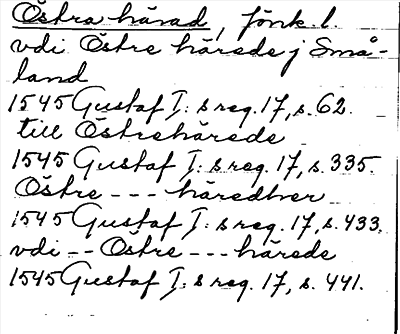 Östra härad, Jönk. l.
vdi Östre härede j Små-
land
1545 Gustaf I:s reg. 17, s. 62.
till Östrehärede
1545 Gustaf I:s reg. 17, s. 335.
Östre --- häredher
1545 Gustaf I:s reg. 17, s. 433.
vdi -- Östre --- härede
1545 Gustaf I:s reg. 17, s. 441.